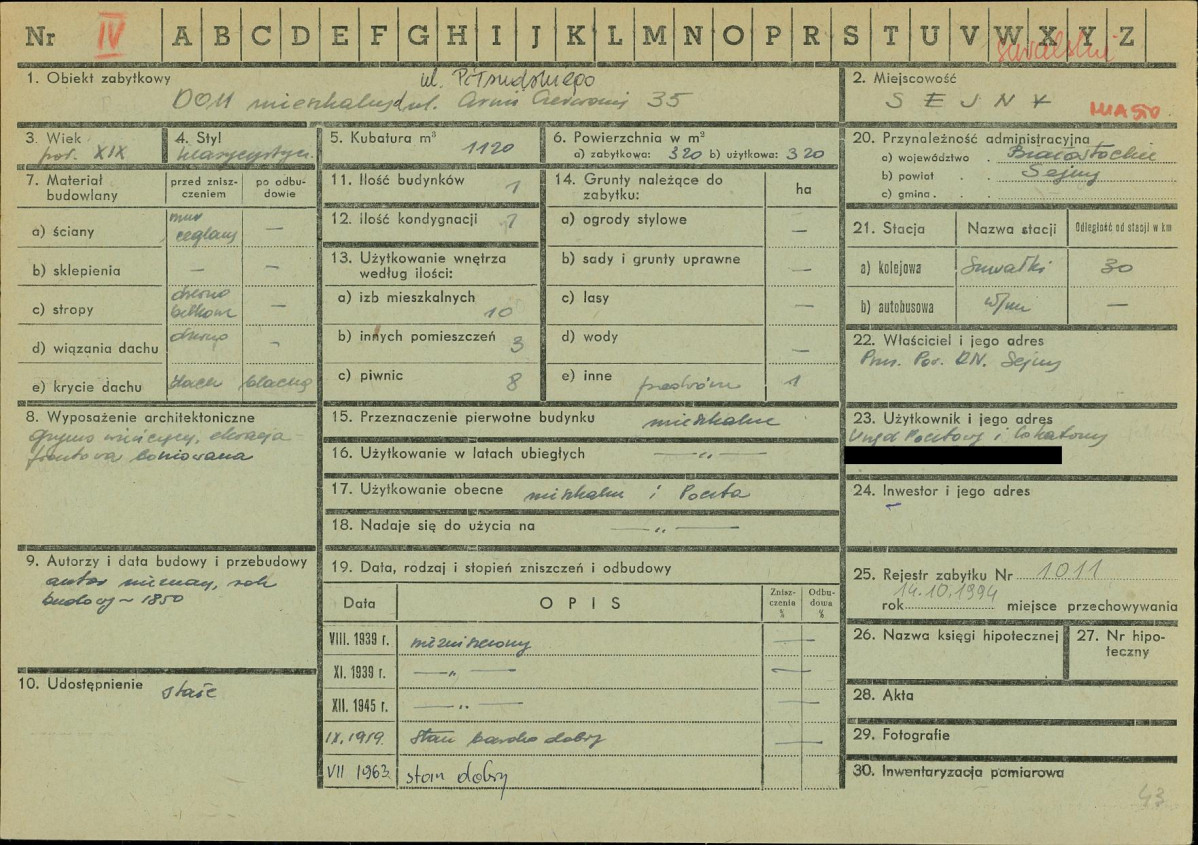 Nr IV A B C D E F G H I J K L M N O P R S T U V W X Y Z
suwalskie
1. Obiekt zabytkowy
ul. Piłsudskiego
DOM mieszkalny, ul. Armii Czerwonej 35
2. Miejscowość
SEJNY
MIASTO
3. Wiek
poł. XIX
4. Styl
klasycystycz.
5. Kubatura m³
1120
6. Powierzchnia w m²
a) zabytkowa: 320 b) użytkowa: 320
20. Przynależność administracyjna
a) województwo . Białostockie
b) powiat . . Sejny
c) gmina . .
7. Materiał budowlany
przed znisz-
czeniem
po odbu-
dowie
a) ściany
mur
ceglany
—
b) sklepienia — —
c) stropy
drewno
belkowe
—
d) wiązania dachu
drewno
—
e) krycie dachu blacha blacha
11. Ilość budynków 1
12. Ilość kondygnacji
13. Użytkowanie wnętrza
według ilości:
a) izb mieszkalnych
10
b) innych pomieszczeń 3
c) piwnic 8
14. Grunty należące do
zabytku:
ha
a) ogrody stylowe —
b) sady i grunty uprawne —
c) lasy —
d) wody —
e) inne 1
21. Stacja Nazwa stacji Odległość od stacji w km
a) kolejowa Suwałki 30
b) autobusowa w/m —
22. Właściciel i jego adres
Prez. Pow. R.N. Sejny
8. Wyposażenie architektoniczne
gzyms wieńczący, elewacja
frontowa boniowana
15. Przeznaczenie pierwotne budynku mieszkalne
16. Użytkowanie w latach ubiegłych — „ —
17. Użytkowanie obecne mieszkalne i Poczta
18. Nadaje się do użycia na — „ —
23. Użytkownik i jego adres
Urząd Pocztowy i lokatorzy
24. Inwestor i jego adres
–
9. Autorzy i data budowy i przebudowy
autor nieznany, rok
budowy ~ 1850
19. Data, rodzaj i stopień zniszczeń i odbudowy
Data OPIS
Znisz-
czenia
%
Odbu-
dowa
%
VIII. 1939 r. niezniszczony —
XI. 1939 r. — „ — —
XII. 1945 r. — „ — —
stan bardzo dobry —
VII 1963 stan dobry
25. Rejestr zabytku Nr 1011
14.10.1994
rok miejsce przechowywania
26. Nazwa księgi hipotecznej
27. Nr hipo-
teczny
10. Udostępnienie stałe
28. Akta
29. Fotografie
30. Inwentaryzacja pomiarowa
43